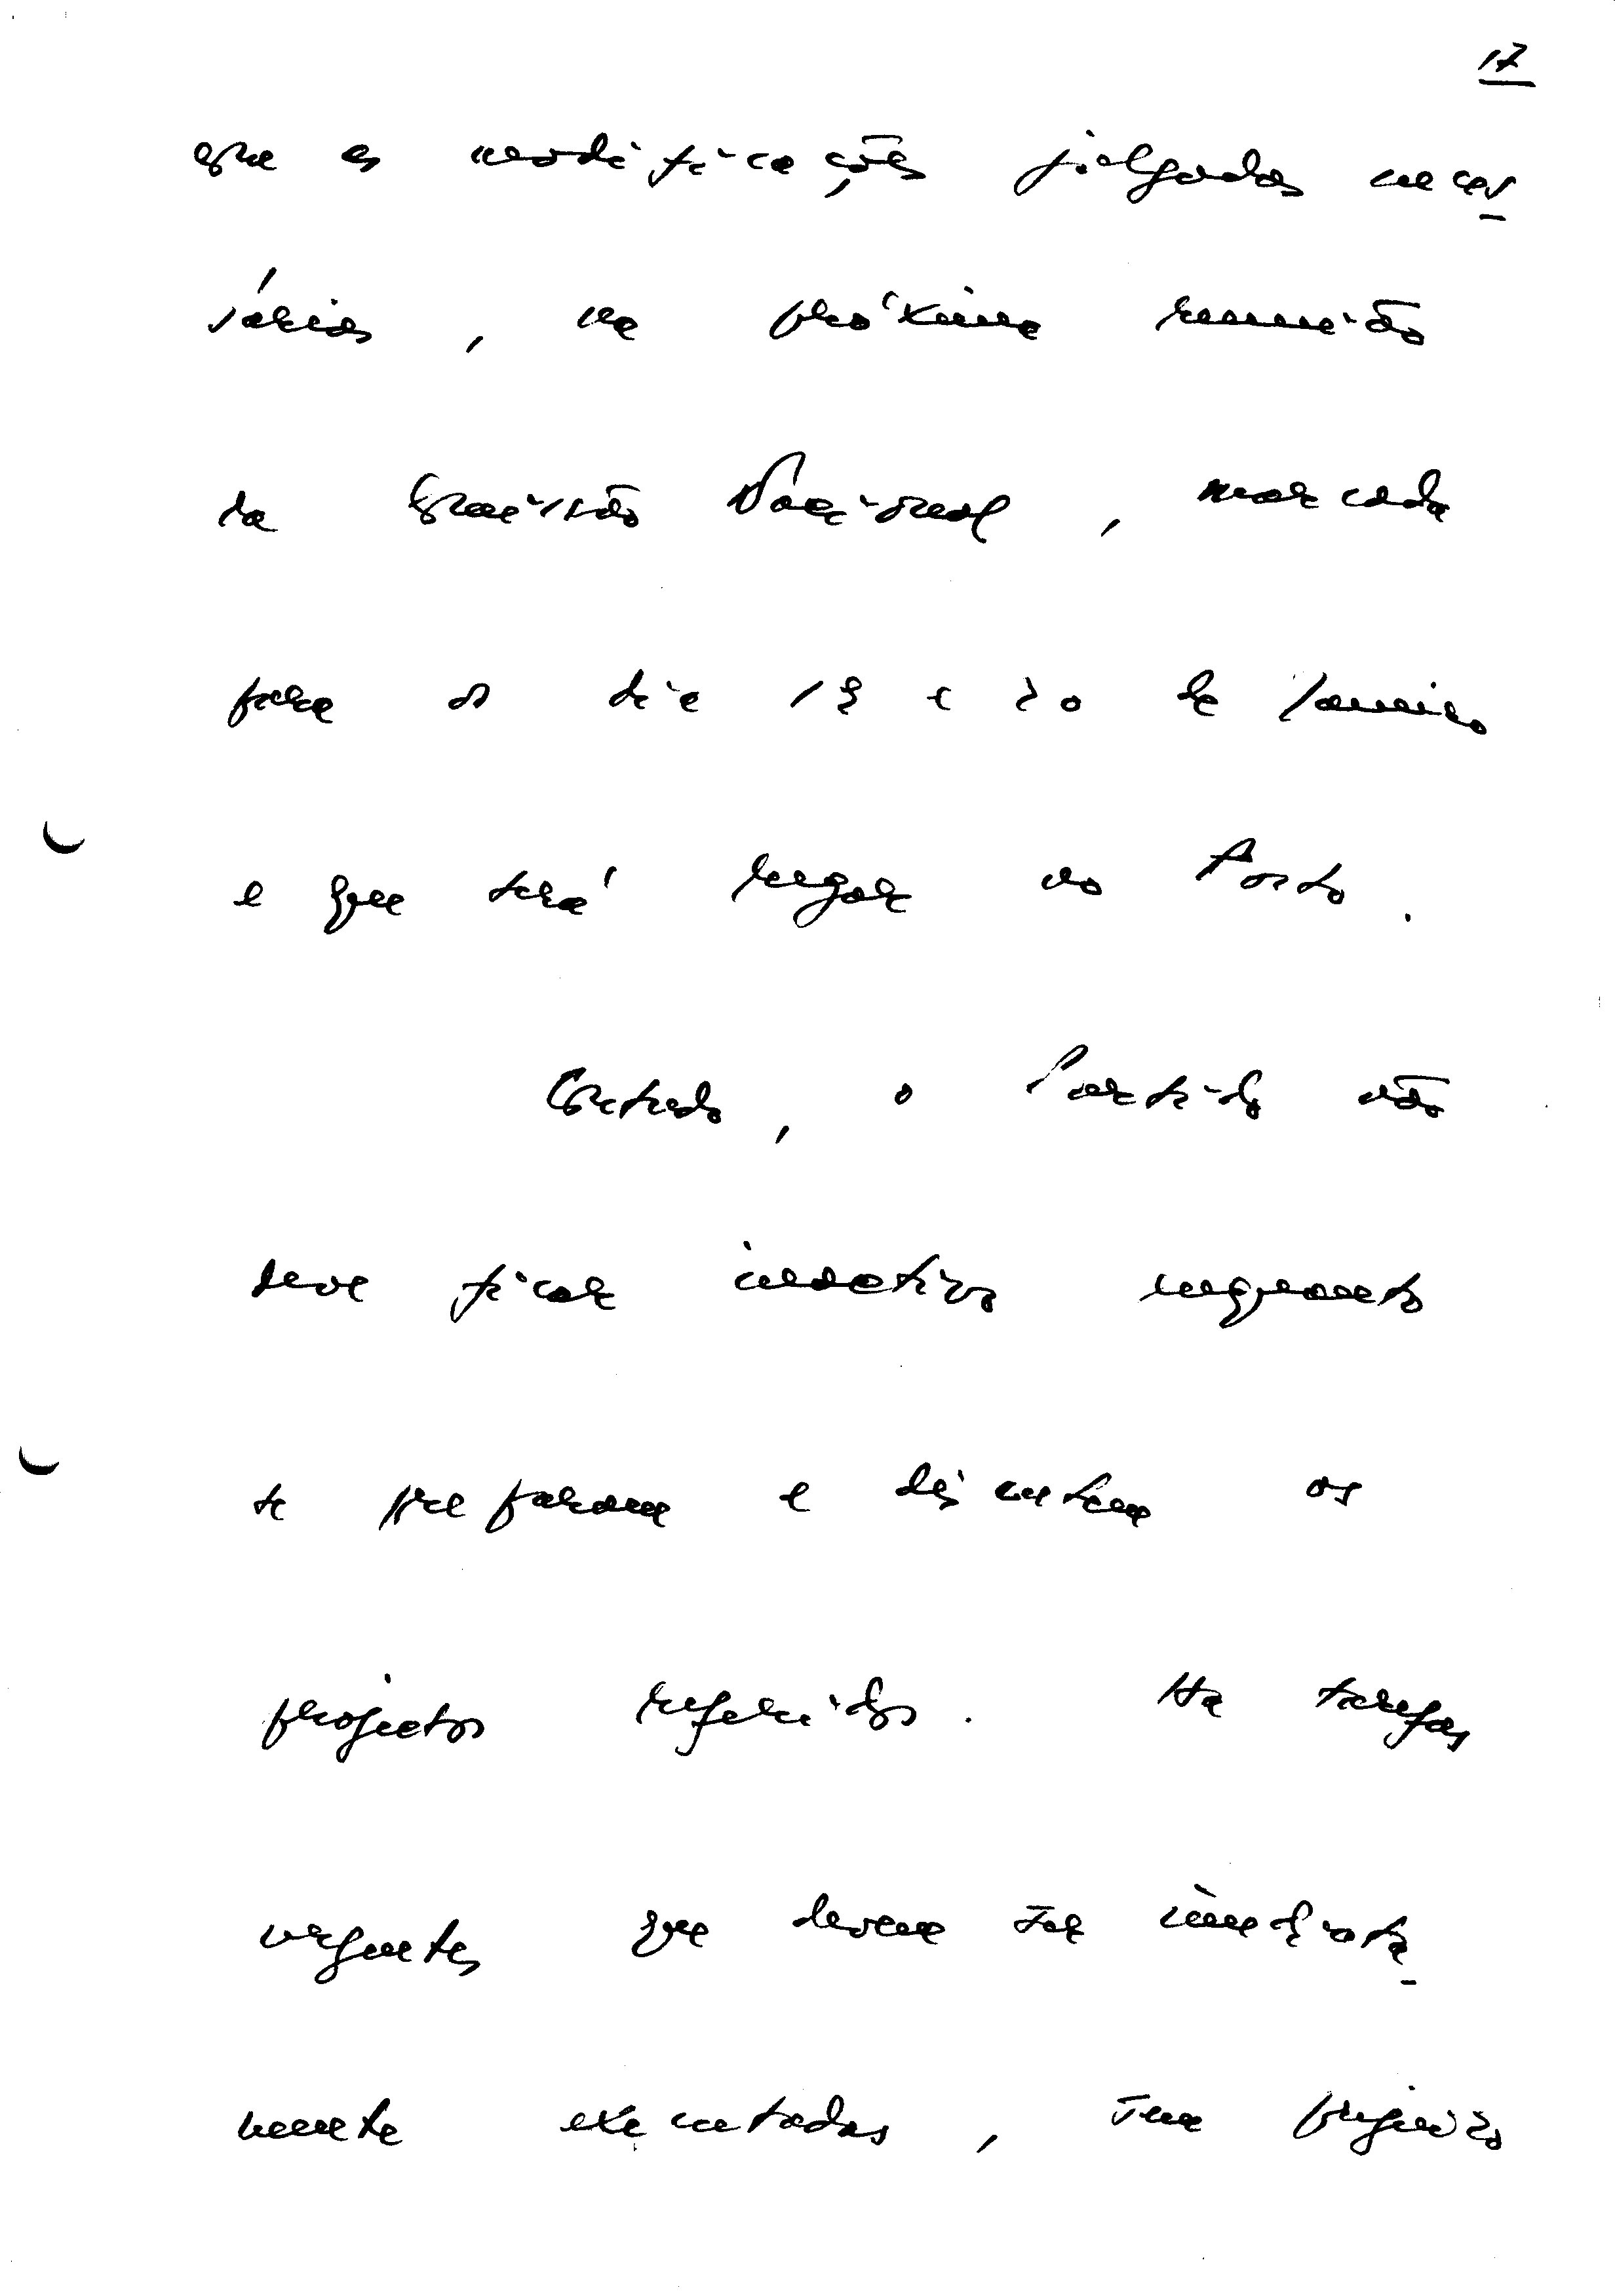 17
que as modificações julgadas neces
sárias, na próxima reunião
da Comissão Nacional, marcada
para os dia 19 e 20 de Janeiro
e que terá lugar no Porto.
Contudo, o Partido não
deve ficar inactivo enquanto
se preparam e discutem os
projectos referidos. Há tarefas
urgentes que devem ser imediata
mente executadas, sem prejuízo